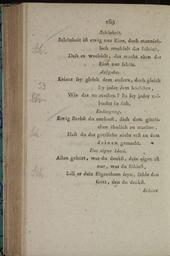 163
Schönheit.
Schönheit ist ewig nur Eine, doch mannich-
fach wechselt das Schöne,
Daß es wechselt, das macht eben das
Eine nur schön.
Aufgabe.
Keiner sey gleich dem andern, doch gleich
sey jeder dem höchsten,
Wie das zu machen? Es sey jeder voll-
endet in sich.
Bedingung.
Ewig strebst du umsonst, dich dem göttli-
chen ähnlich zu machen,
Hast du das göttliche nicht erst zu dem
deinen gemacht.
Das eigne Ideal.
Allen gehört, was du denkst, dein eigen ist
nur, was du fühlest,
Soll er dein Eigenthum seyn, fühle den
Gott, den du denkst.
Schöne